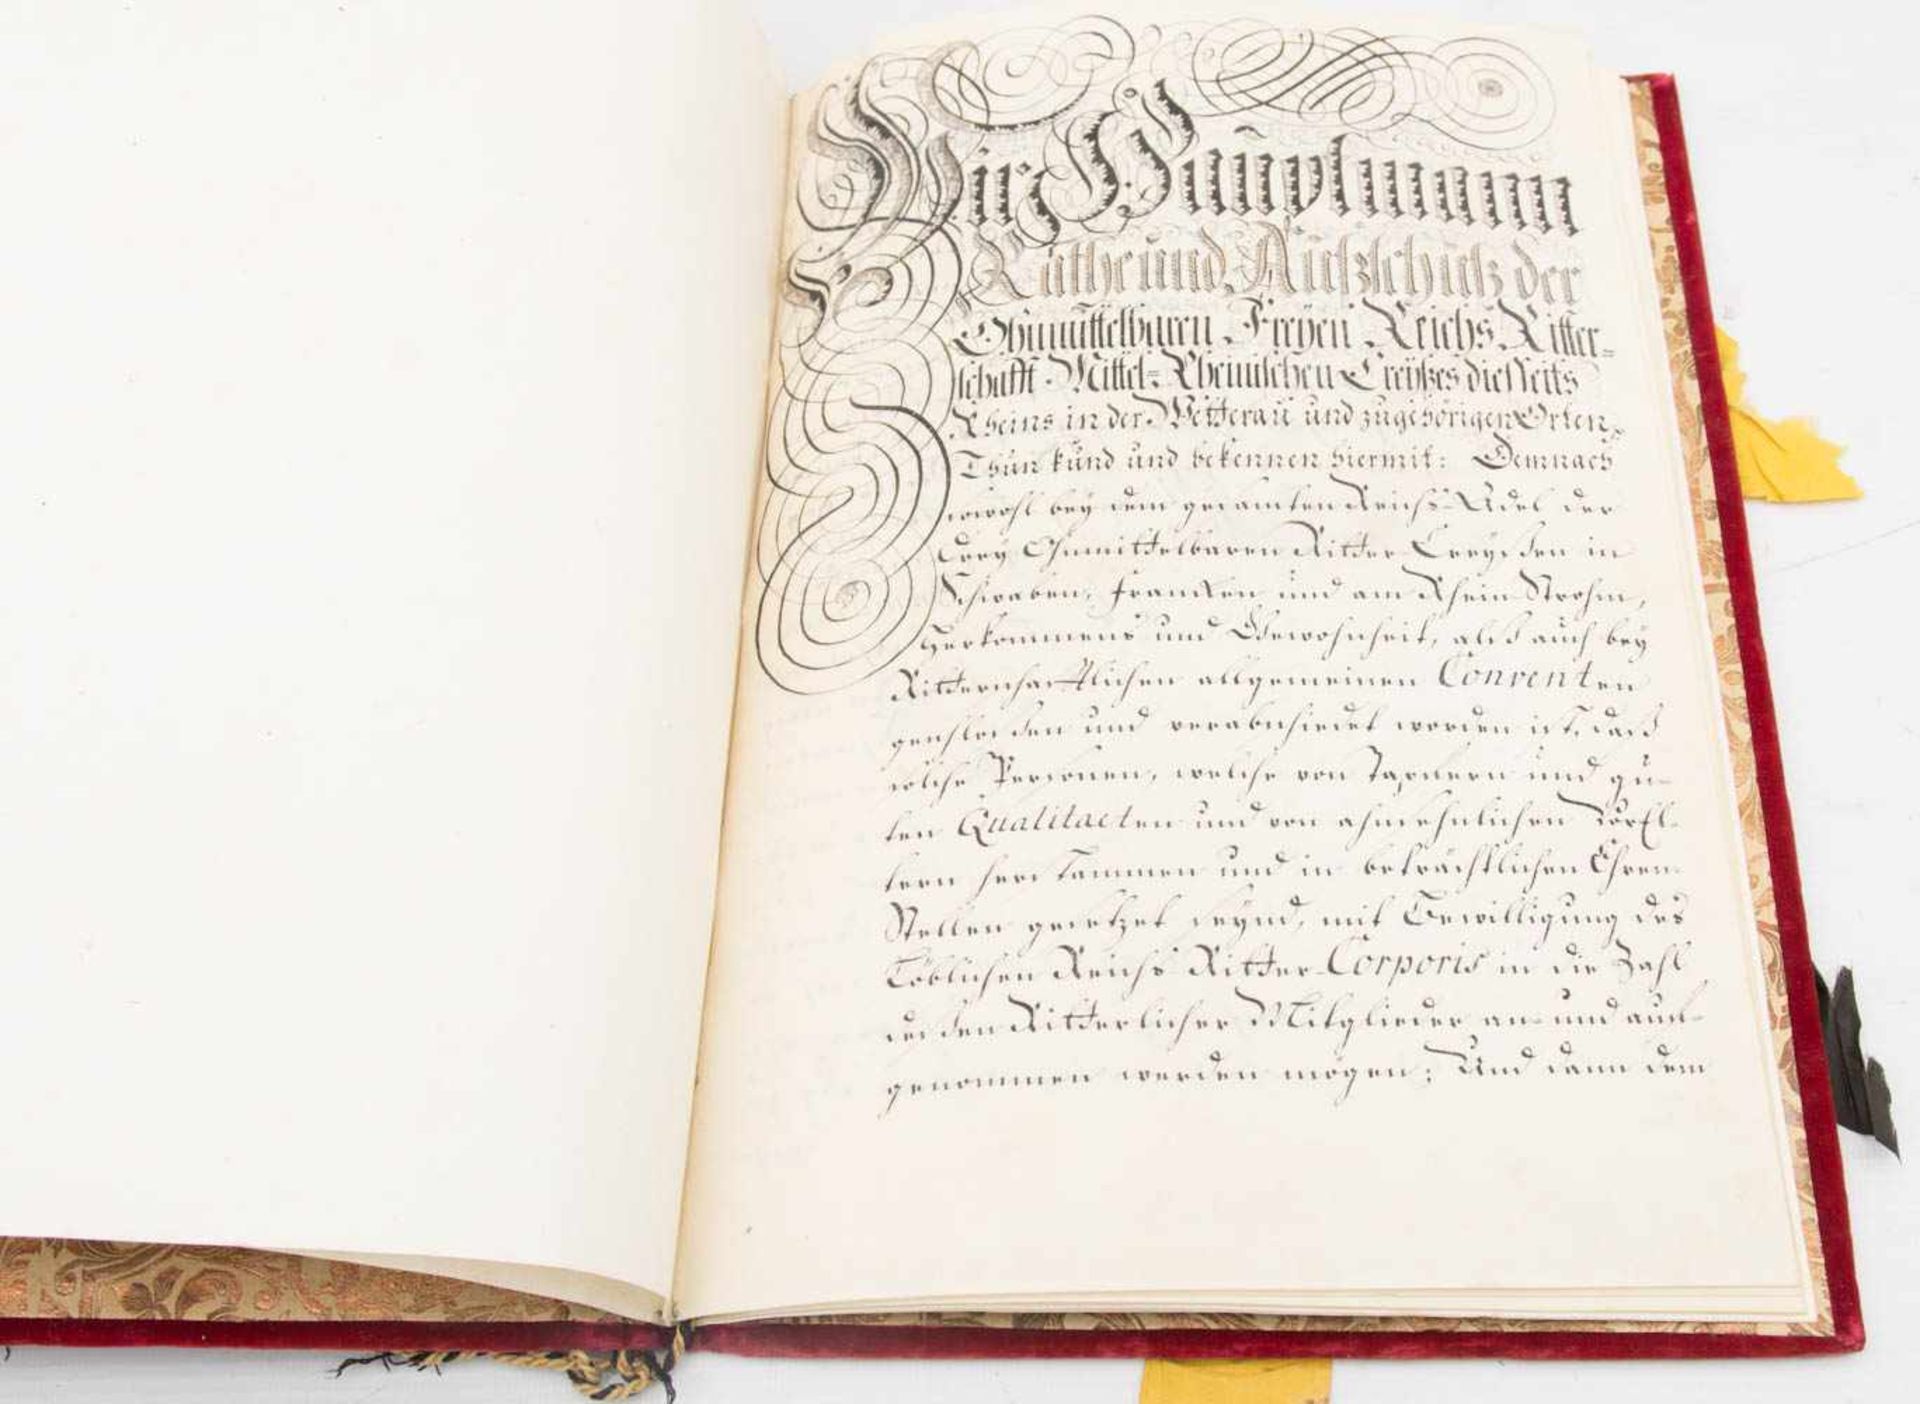 Wir Hauptmann
Räthe und Außschuß der
Ohnmittelbaren Freyen Reichs Ritter=
schafft Mittel=Rheinischen Creyßes diesseits
Rheins in der Wetterau und zugehörigen Orten,
Thun kund und bekennen hiermit: Demnach
sowohl bey dem gesamten Reichs-Adel der
drey Ohnmittelbaren Ritter Creyßen in
Schwaben, Francken und am Rhein Strohm,
Herkommens und Gewohnheit, alß auch bey
Ritterschafftlichen allgemeinen Conventen
geschloßen und verabschiedet worden ist, daß
solche Personen, welche von Tapfern und gu-
ten Qualitaeten und von ahnsehnlichen VorEl-
tern herstammen und in beträchtlichen Ehren-
Stellen gesetzet seynd, mit Bewilligung des
Löblichen Reichs Ritter-Corporis in die Zahl
deßen Ritterlicher Mitglieder an- und auf-
genommen werden mögen; Und dann dem